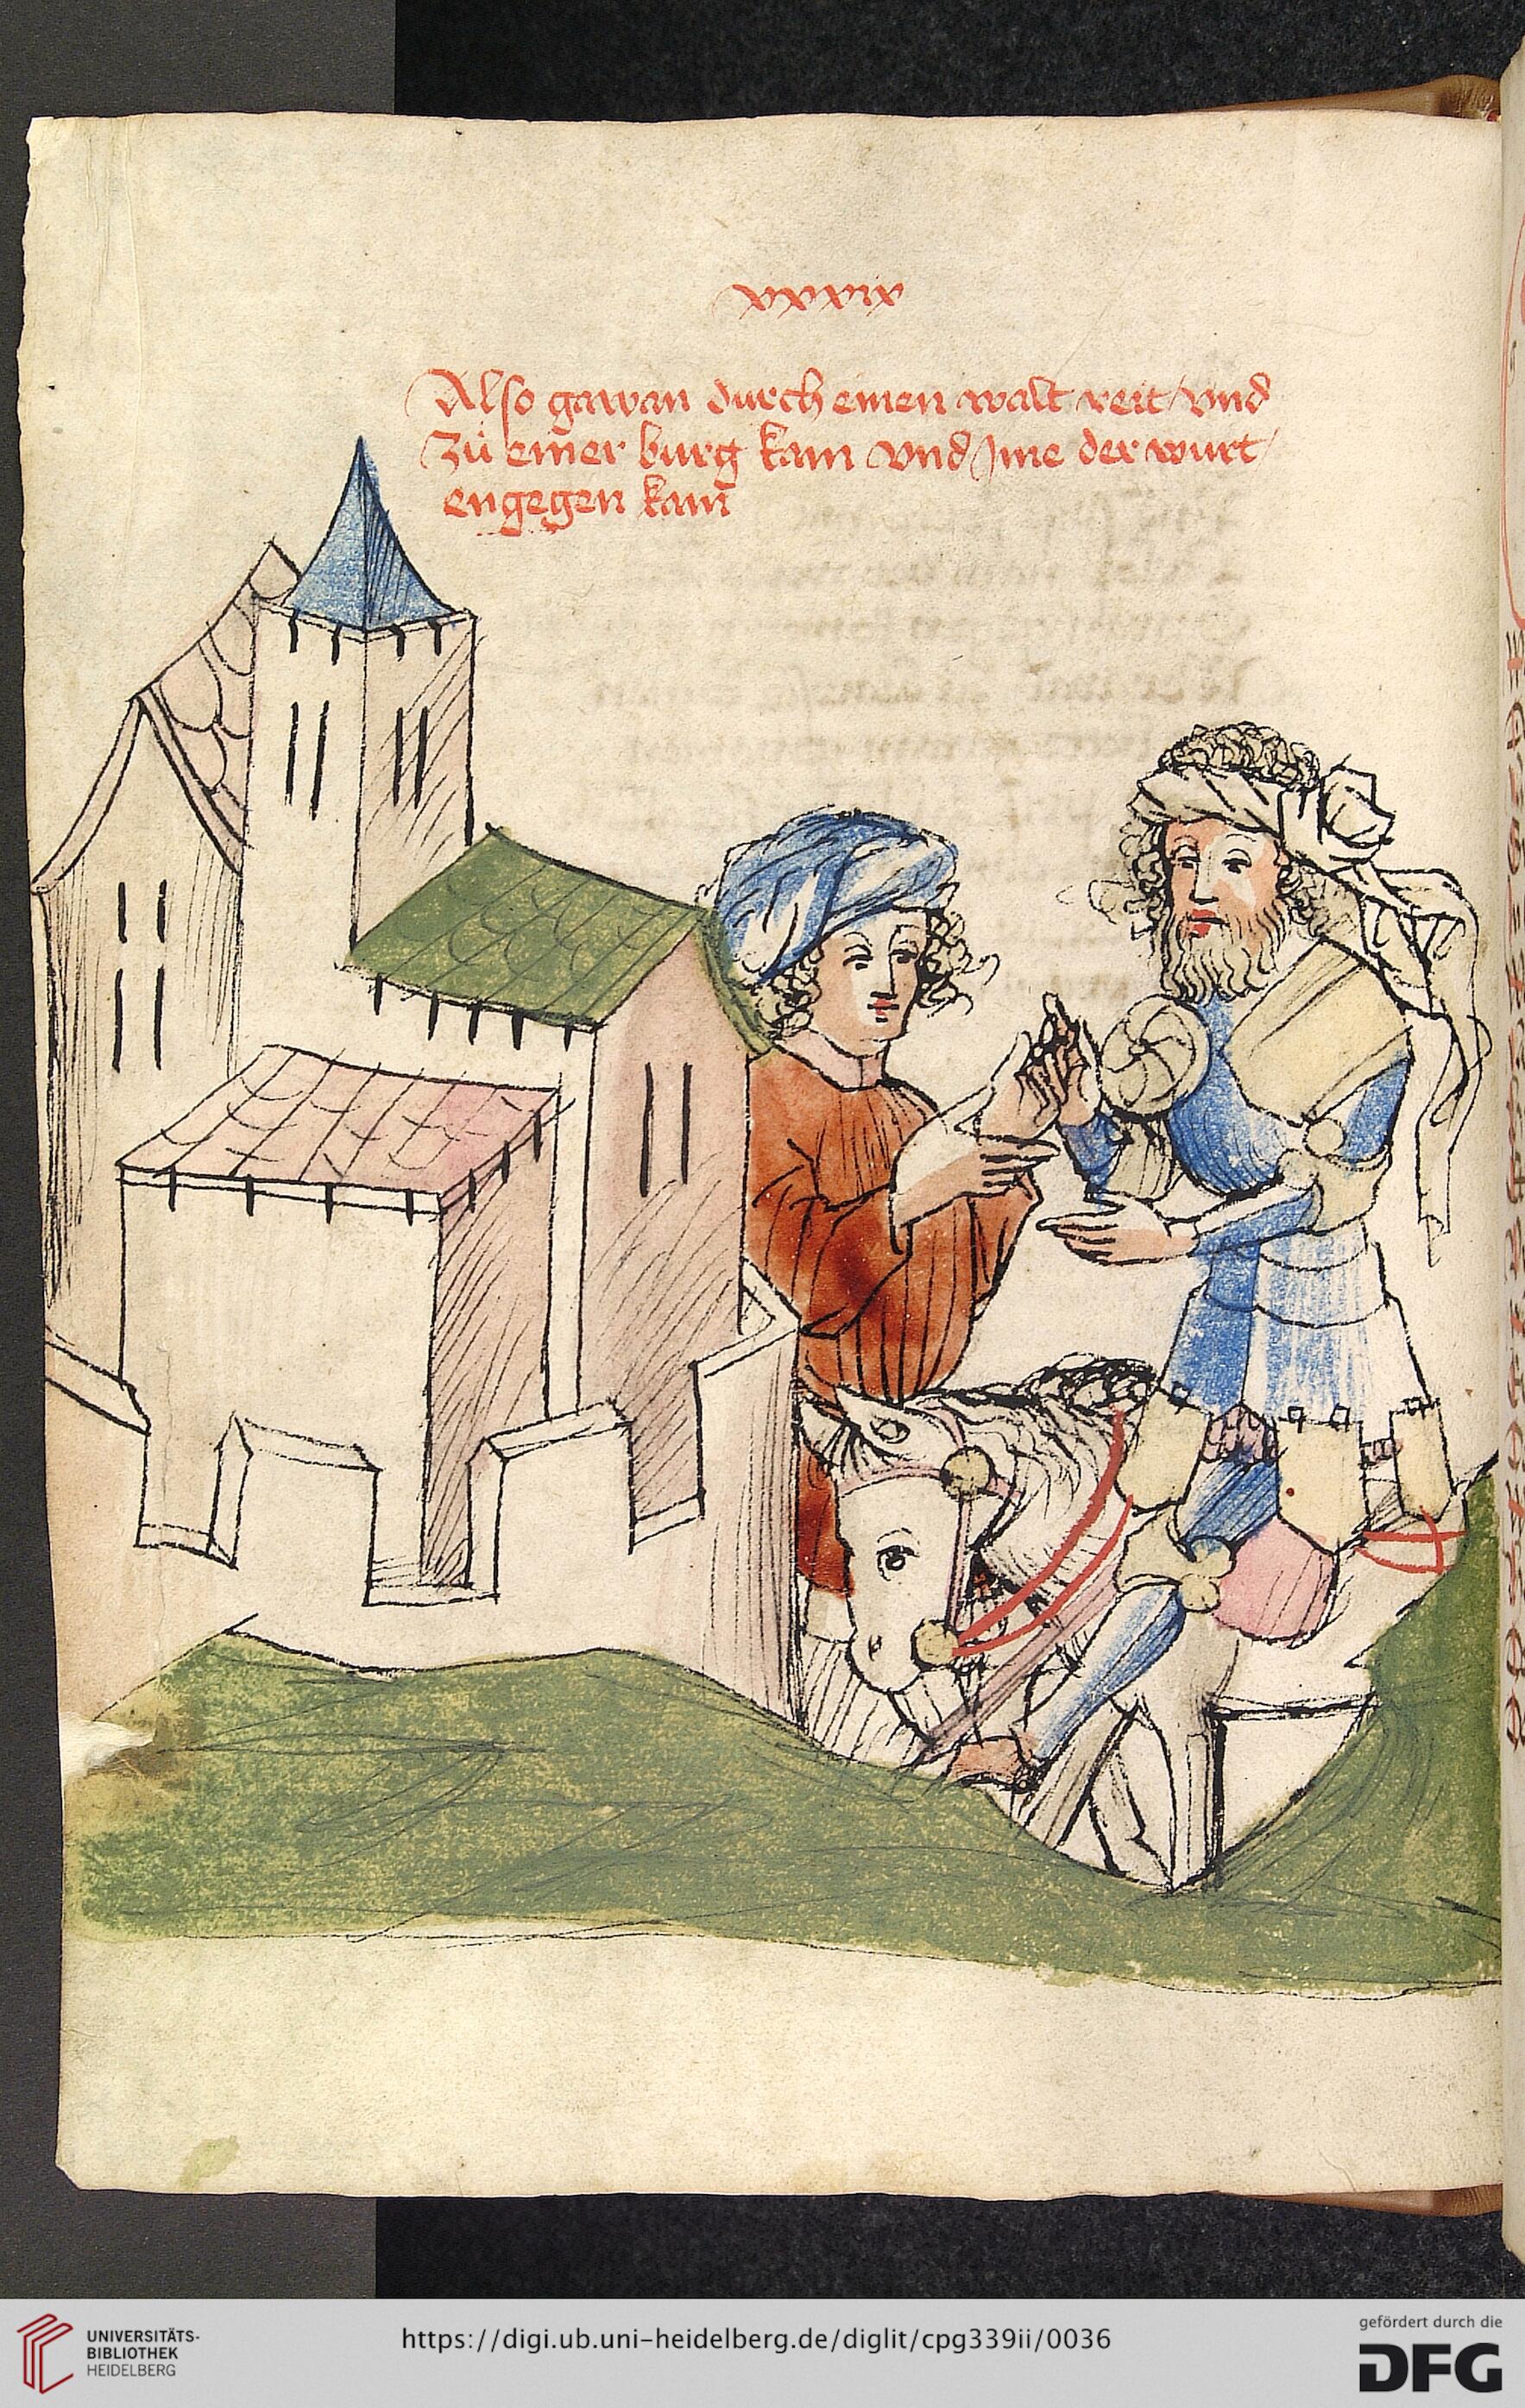 xxxix
Also gawan durch einen walt reit / vnd
zu einer burg kam vnd Jme der wurt /
engegen kam
UNIVERSITÄTS-
BIBLIOTHEK
HEIDELBERG
https://digi.ub.uni-heidelberg.de/diglit/cpg339ii/0036
gefördert durch die
DFG